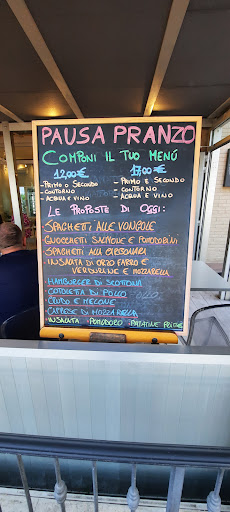 PAUSA PRANZO
COMPONI IL TUO MENÚ
12,00€ 17,00€
- PRIMO O SECONDO - PRIMO E SECONDO
- CONTORNO - CONTORNO
- ACQUA E VINO - ACQUA E VINO
LE PROPOSTE DI OGGI:
SPAGHETTI ALLE VONGOLE
GNOCCHETTI SALMONE E POMODORINI
SPAGHETTI ALLA CARBONARA
INSALATA DI ORZO FARRO E
VERDURINE E MOZZARELLA
HAMBURGER DI SCOTTONA
COTOLETTA DI POLLO
CRUDO E MELONE
CAPRESE DI MOZZARELLA
INSALATA POMODORO PATATINE FRITTE